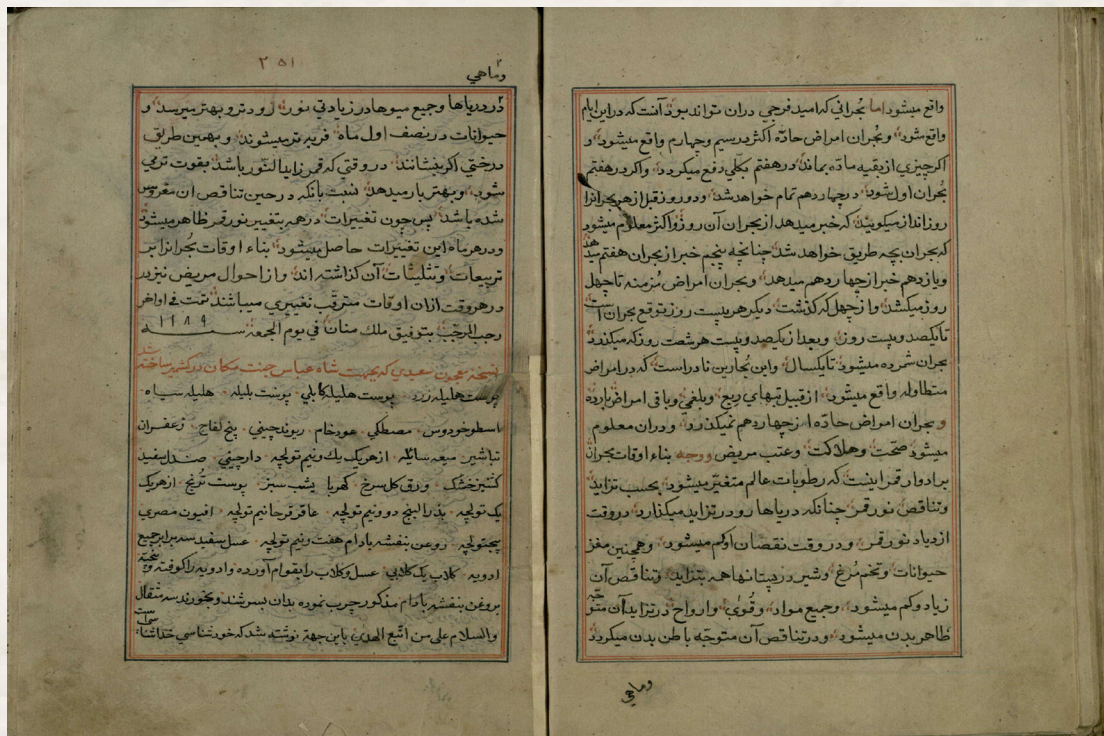 واقع میشود اما بحرانی که امید فرجی دران تواند بود آنست که دراین ایام
واقع شود و بحران امراض حادّه اکثر در سیم وچهارم واقع میشود و
اکر چیزی از بقیه مادّه بماند در هفتم بکلی دفع میکردد واکر در هفتم
بحران اول شود در چهاردهم تمام خواهد شد ودو روز قبل از هر بحرانرا
روز انذار میکویند که خبر میدهد از بحران آن روز واکثر معلوم میشود
که بحران بچه طریق خواهد شد چنانچه پنجم خبر از بحران هفتم میدهد
ویازدهم خبر از چهاردهم میدهد وبحران امراض مُزمنه تا چهل
روز میکشد واز چهل که کذشت دیکر هر بیست روز توقع بحران است
تا یکصد وبیست روز وبعد از یکصد وبیست هر شصت روز که میکذرد
بحران شمرده میشود تا یکسال واین بحارین نادر است که در امراض
متطاوله واقع میشود از قبیل تبهای ربع وبلغمی وباقی امراض بارده
و بحران امراض حادّه از چهاردهم نمیکذرد ودران معلوم
میشود صحّت وهلاکت وعتب مریض ووجه بناء اوقات بحران
بر ادوار قمر اینست که رطوبات عالم متغیّر میشود بحسب تزاید
وتناقص نور قمر چنانکه دریاها رو در تزاید میکذارد در وقت
ازدیاد نور قمر ودر وقت نقصان او کم میشود وهمچنین مغز
حیوانات وتخم مُرغ وشیر در پستانها همه بتزاید وتناقص آن
زیاد وکم میشود وجمیع مواد وقُوٰی وارواح در تزاید آن متوجّه
ظاهر بدن میشود ودر تناقص آن متوجّه باطن بدن میکردد
وماهی
٢٥١
وماهی
در دریاها وجمیع میوها در زیادتی نور زودتر و بهتر میرسد و
حیوانات در نصف اول ماه فربه تر میشوند وبهمین طریق
درختی اکر بنشانند در وقتی که قمر زاید النور باشد بقوت نرمی
شود وبهتر بار میدهد نسبت بآنکه در حین تناقص ان مغروس
شده باشد پس چون تغییرات در همه بتغییر نور قمر ظاهر میشود
ودر هر ماه این تغییرات حاصل میشود بناء اوقات بُحرانرا بر
تربیعات وتثلیثات آن کذاشته اند واز احوال مریض نیز در
در هر وقت ازان اوقات مترقب تغییری میباشد تمت فی اواخر
رجب المرجّب بتوفیق ملك منان فی یوم الجمعة سنــه ١١٨٩
نسخهٔ معجون سعیدی که بجهت شاه عباس جنت مکان در کشمیر ساخته شد
پوست هلیله زرد پوست هلیله کابلی پوست بلیله هلیله سیاه
اسطوخودوس مصطکی عود خام ریوند چینی بیخ لفاح زعفران
تباشیر میعه سائله از هر یک یك ونیم تولچه دارچینی صندل سفید
کشنیز خشک ورق کل سرخ کهربا یشب سبز پوست تُرنج از هر یک
یک تولچه بذر البنج دو ونیم تولچه عاقرقرحا نیم تولچه افیون مصری
پنجتولچه روغن بنفشه بادام هفت ونیم تولچه عسل سفید سه برابر جمیع
ادویه کلاب یک کلابی عسل وکلاب را بقوام آورده وادویه را کوفته وبیخته
بروغن بنفشه بادام مذکور چرب نموده بدان بسرشند وبخورند سه مثقال است
والسلام علی من اتّبع الهدی باین جهة نوشته شد که خود شناسی خدا شناسی است